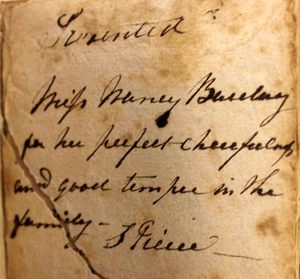 Presented
Miss Nancy Barclay
for her perfect cheerfulness
and good temper in the
family—